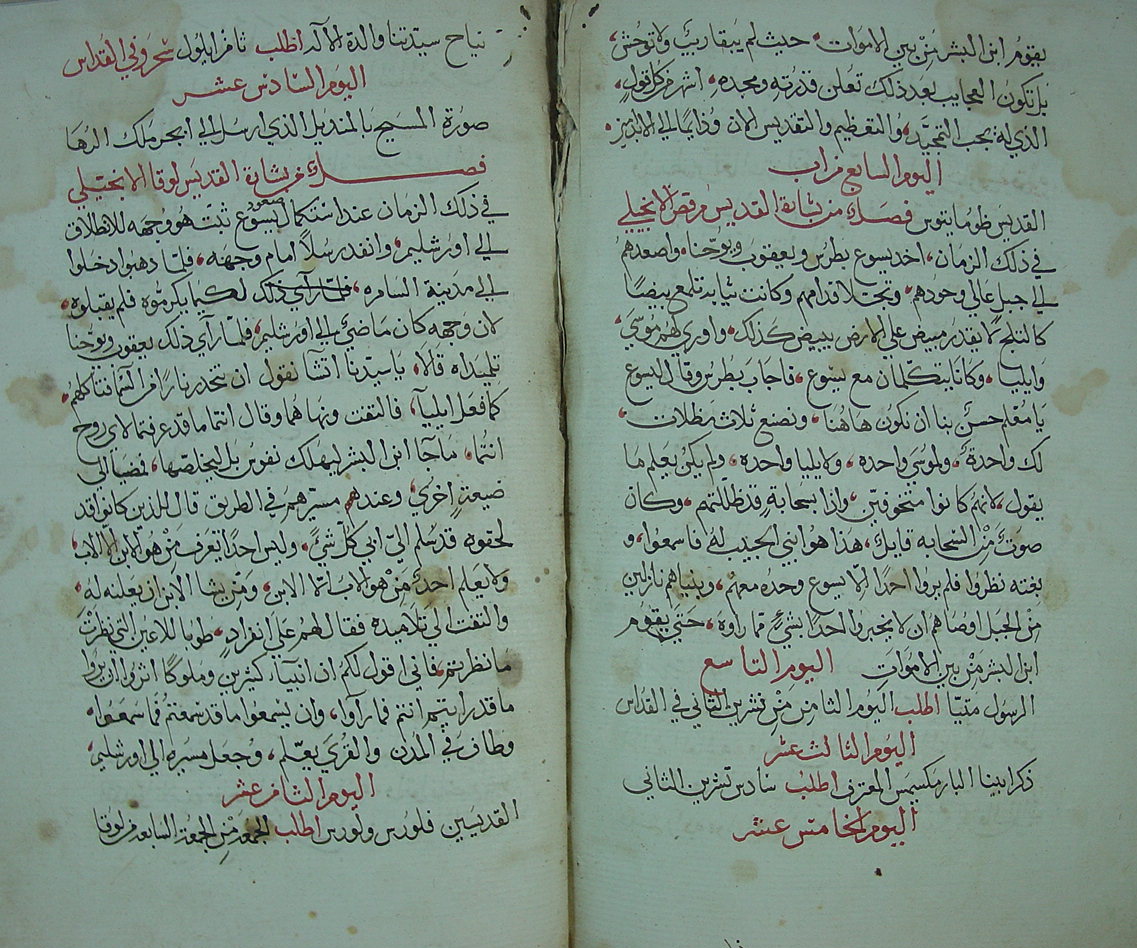 يقوم ابن البشر من بين الاموات، حديث لم يبقا ريب ولا توحش،
بل تكون العجايب بعد ذلك تعلن قدرته ومجده، اشهر من كل قول،
الذي له يجب التمجيد، والتعظيم والتقديس الان ودايما الي الابد
اليوم السابع من اب
القديس ظوماتيوس فصل من بشارة القديس مرقص الانجيلي
في ذلك الزمان، اخد يسوع بطرس ويعقوب ويوحنا، واصعدهم
الي جبل عالي وحودهم، وتجلا قدامهم وكانت ثيابه تلمع بيضا
كالثلج لا يقدر مبيض علي الارض يبيض كذلك، واوري لهم موسي
وايليا، وكانا يتكلمان مع يسوع، فاجاب بطرس وقال ليسوع
يا معلم حسن بنا ان نكون هاهنا، ونصنع ثلاث مظلات،
لك واحدة، ولموسي واحده، ولايليا واحده، ولم يكن يعلم ما
يقول، لانهم كانوا متخوفين، واذا سحابة قد ظللتهم، وكان
صوت من السحابه قايل، هذا هو ابني الحبيب له فاسمعوا، و
بغته نظروا فلم يروا احدا الا يسوع وحده معهم، وبينما هم نازلين
من الجبل اوصاهم ان لا يخبروا احدا بشي مما راوه، حتي يقوم
ابن البشر من بين الاموات اليوم التاسع
الرسول متيا اطلب اليوم الثامن من تشرين الثاني في القداس
اليوم الثالث عشر
ذكر ابينا البار مكسيمس المعترف اطلب سادس تشرين الثاني
اليوم الخامس عشر
نياح سيدتنا والدة الاله اطلب ثامن ايلول سحر وفي القداس
اليوم السادس عشر
صورة المسيح بالمنديل الذي ارسل الي ابجر ملك الرها
فصل من بشارة القديس لوقا الانجيلي
في ذلك الزمان عند استكمال صعود يسوع ثبت هو وجهه للانطلاق
الي اورشليم، وانفد رسلا امام وجهه، فلما دهبوا دخلوا
الي مدينة السامره، فلما راي ذلك لكيما يكرموه فلم يقبلوه،
لان وجهه كان ماضي الي اورشليم، فلما راي ذلك يعقوب ويوحنا
تلميداه قالا، يا سيدنا اتشا نقول ان تنحدر نار من السما تتاكلهم،
كما فعل ايليا، فالتفت ونهاهما وقال انتما ما قد عرفتما لاي روح
انتما، ما جا ابن البشر ليهلك نفوس بل ليخلصها، فمضيا الي
ضيعة اخري، وعندهم مسيرهم في الطريق قال للذين كانوا قد
لحقوه قد سلم الي ابي كل شي، وليس احدا يعرف من هو الابن الا الاب
ولا يعلم احد من هو الاب الا الابن، ومن يشا الابن ان يعلنه له،
والتفت الي تلاميده فقال لهم علي انفراد، طوبا للاعين التي نظرت
ما نظرتم، فاني اقول لكم ان انبيا كثيرين وملوكا اثروا ان يروا
ما قد رايتم انتم فما راوا، وان يسمعوا ما قد سمعتم فما سمعوا،
وطاف في المدن والقري يعلم، وجعل مسيره الي اورشليم،
اليوم الثامن عشر
القديسين فلورس ولورس اطلب الجمعه من الجمعة السابعه من لوقا